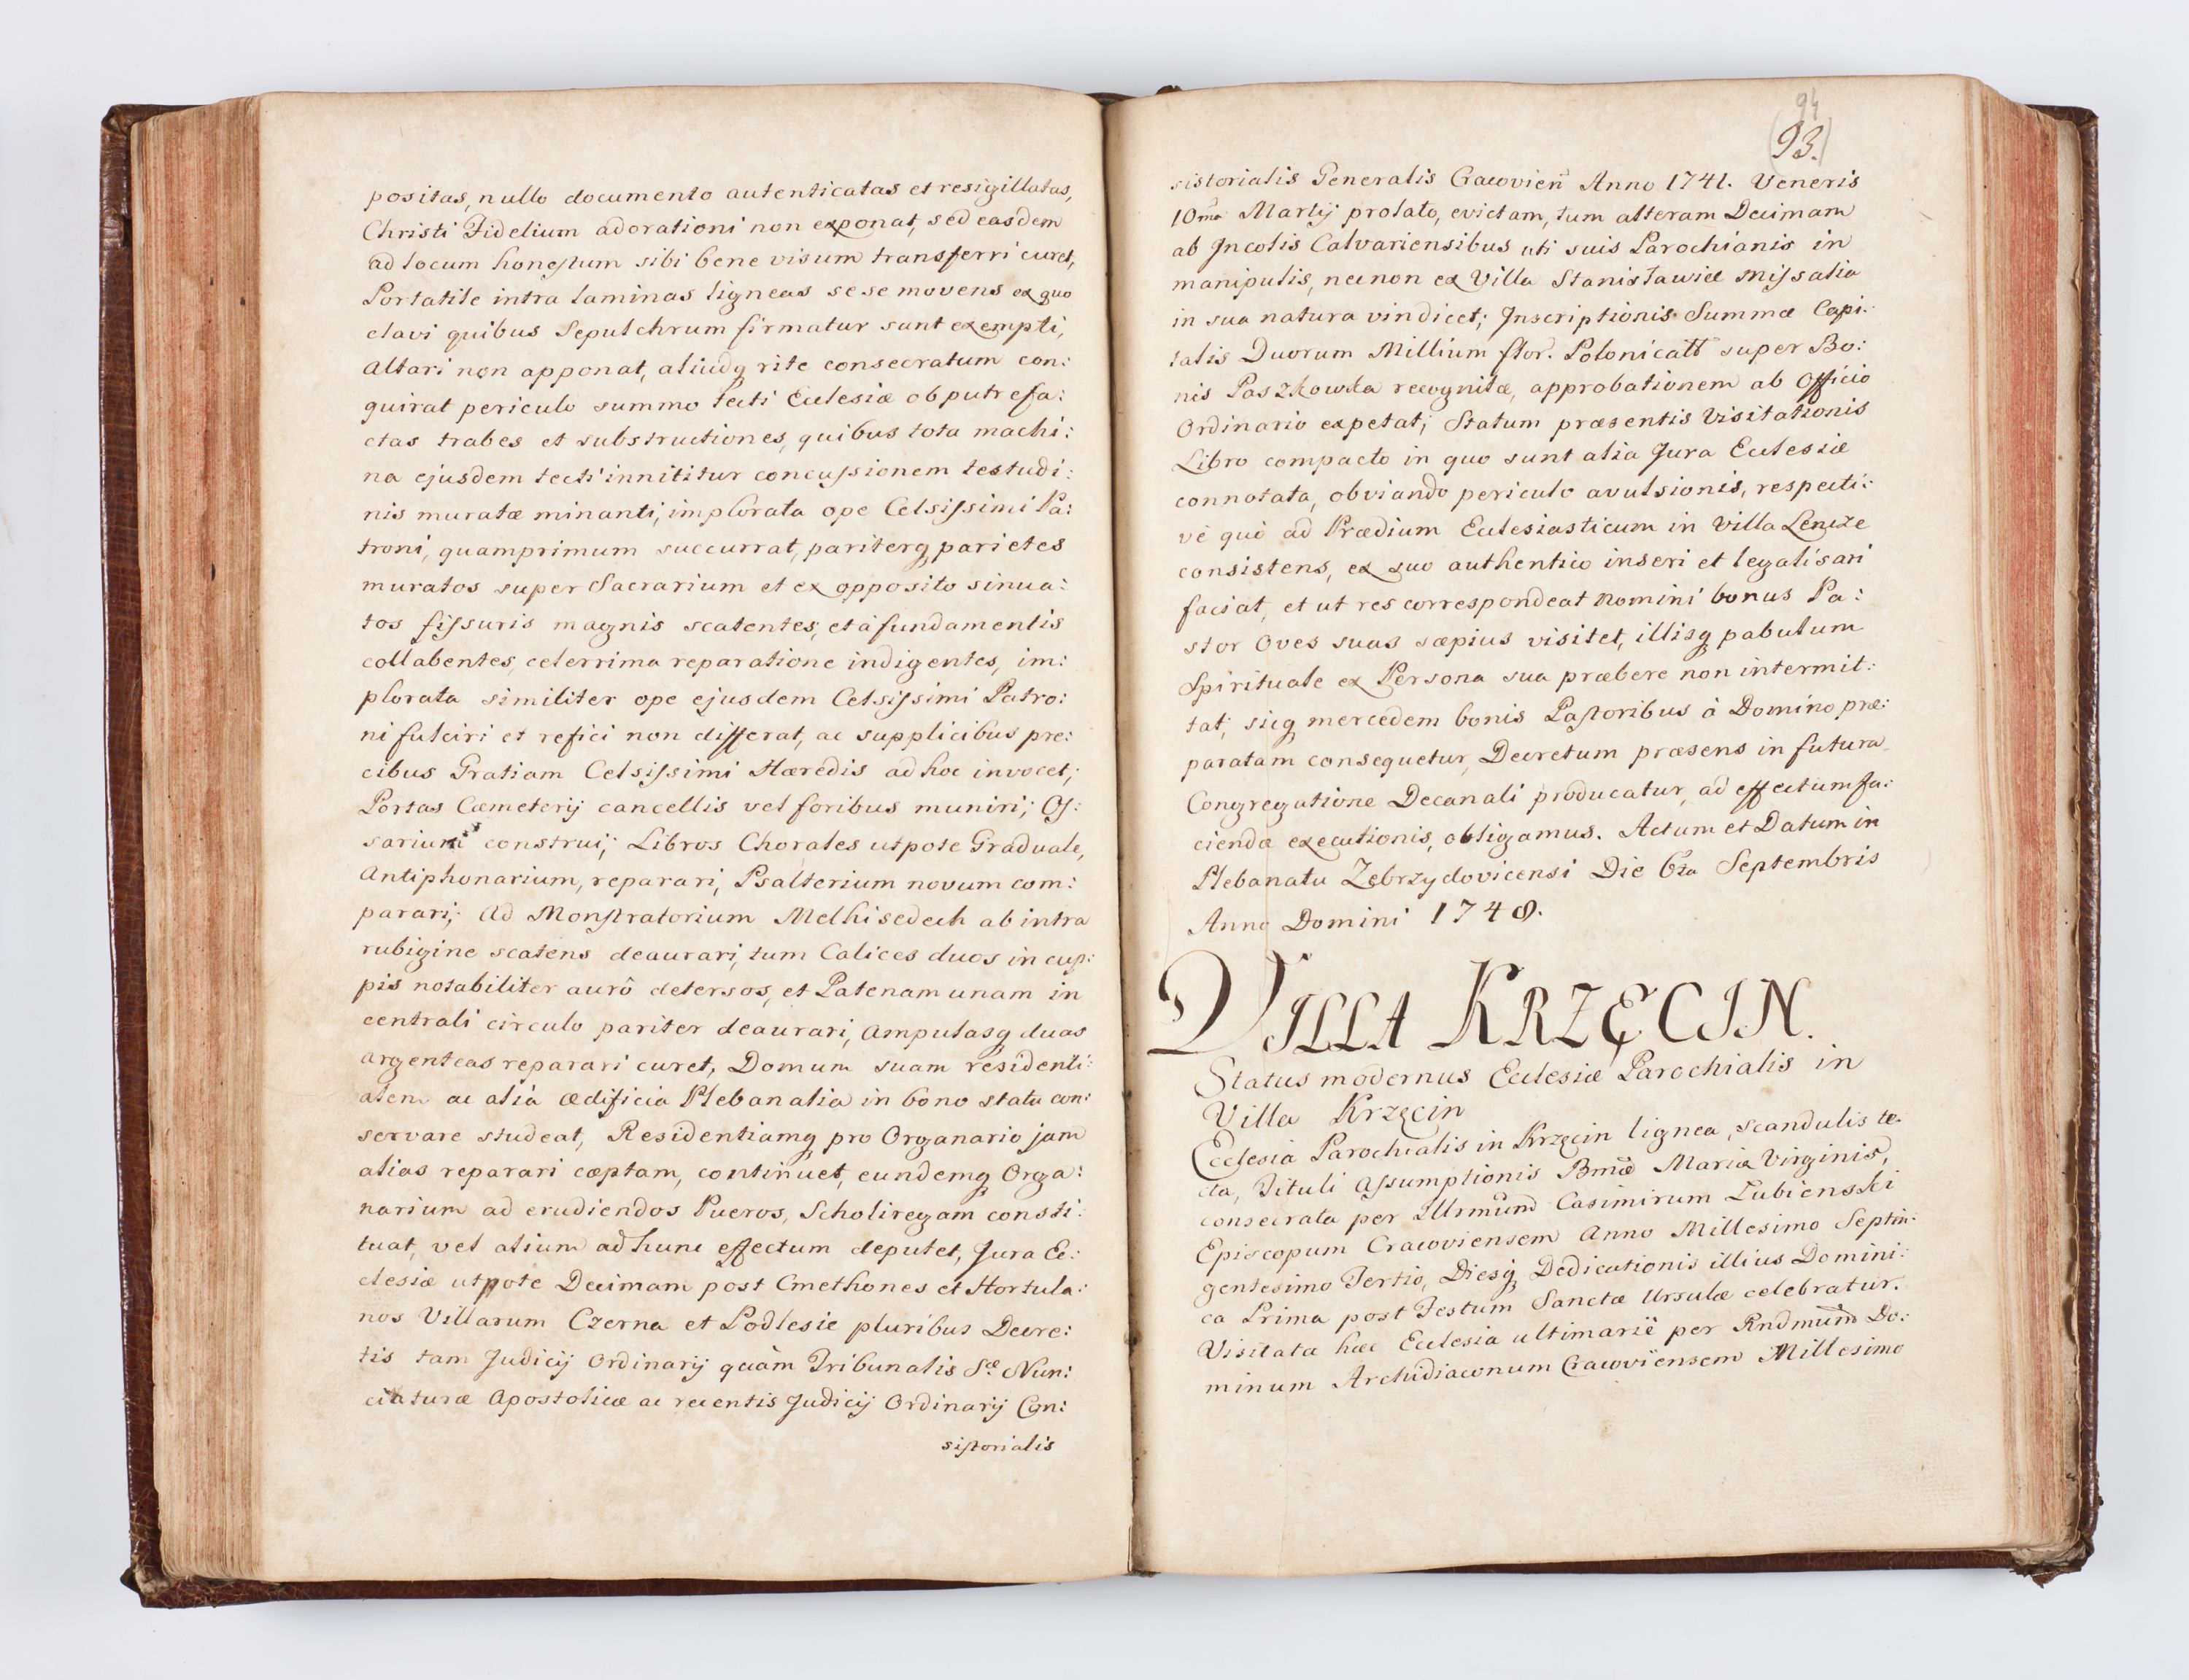 positas, nullo documento autenticatas et resigillatas,
Christi Fidelium adorationi non exponat, sed easdem
ad locum honestum sibi bene visum transferri curet,
Portatile intra laminas ligneas sese movens ex quo
clavi quibus Sepulchrum firmatur sunt exempti,
Altari non apponat, aliudq rite consecratum con:
quirat periculo summo tecti Ecclesiæ ob putrefa:
ctas trabes et substructiones, quibus tota machi:
na ejusdem tecti innititur concussionem testudi:
nis muratæ minanti, implorata ope Celsissimi Pa:
troni, quamprimum succurrat, pariterq parietes
muratos super Sacrarium et ex opposito sinua:
tos fissuris magnis scatentes, et à fundamentis
collabentes, celerrima reparatione indigentes, im:
plorata similiter ope ejusdem Celsissimi Patro:
ni fulciri et refici non differat, ac supplicibus pre:
cibus Gratiam Celsissimi Hæredis ad hoc invocet;
Portas Cæmeterij cancellis vel foribus muniri; Os:
sarium construi; Libros Chorales utpote Graduale,
Antiphonarium, reparari, Psalterium novum com:
parari; Ad Monstratorium Melhisedech ab intra
rubigine scatens deaurari, tum Calices duos in cup:
pis notabiliter aurô detersos, et Patenam unam in
centrali circulo pariter deaurari, Ampulasq duas
argenteas reparari curet, Domum suam residenti:
alem ac alia ædificia Plebanalia in bono statu con:
servare studeat, Residentiamq pro Organario jam
alias reparari cæptam, continuet, eundemq Orga:
narium ad erudiendos Pueros, Scholiregam consti:
tuat, vel alium ad hunc effectum deputet, Jura Ec:
clesiæ utpote Decimam post Cmethones et Hortula:
nos Villarum Czerna et Podlesie pluribus Decre:
tis tam Judicij Ordinarij quàm Tribunalis Sæ Nun:
ciaturæ Apostolicæ ac recentis Judicij Ordinarij Con:
sistorialis
94
(93.)
sistorialis Generalis Cracovien̄ Anno 1741. Veneris
10ma Martij prolato, evictam, tum alteram Decimam
ab Incolis Calvariensibus uti suis Parochianis in
manipulis, necnon ex Villa Stanisławice Missalia
in sua natura vindicet; Inscriptionis Summæ Capi:
talis Duorum Millium flor. Polonicall super Bo:
nis Paszkowka recognitæ, approbationem ab Officio
Ordinario expetat; Statum præsentis Visitationis
Libro compacto in quo sunt alia Jura Ecclesiæ
connotata, obviando periculo avulsionis, respecti:
vè quò ad Prædium Ecclesiasticum in Villa Lencze
consistens, ex quo authentico inseri et legalisari
faciat, et ut res correspondeat Nomini bonus Pa:
stor Oves suas sæpius visitet, illisq pabulum
Spirituale ex Persona sua præbere non intermit:
tat, sicq mercedem bonis Pastoribus à Domino præ:
paratam consequetur, Decretum præsens in futura
Congregatione Decanali producatur, ad effectum fa:
ciendæ executionis, obligamus. Actum et Datum in
Plebanatu Zebrzydovicensi Die 6ta Septembris
Anno Domini 1748.
VILLA KRZĘCIN.
Status modernus Ecclesiæ Parochialis in
Villa Krzęcin
Ecclesia Parochialis in Krzęcin lignea, scandulis te:
cta, Tituli Assumptionis Bmæ Mariæ Virginis,
consecrata per Illsmum Casimirum Łubienski
Episcopum Cracoviensem Anno Millesimo Septin:
gentesimo Tertio, Diesq Dedicationis illius Domini:
ca Prima post Festum Sanctæ Ursulæ celebratur.
Visitata hæc Ecclesia ultimariè per Rndmum Do:
minum Archidiaconum Cracoviensem Millesimo